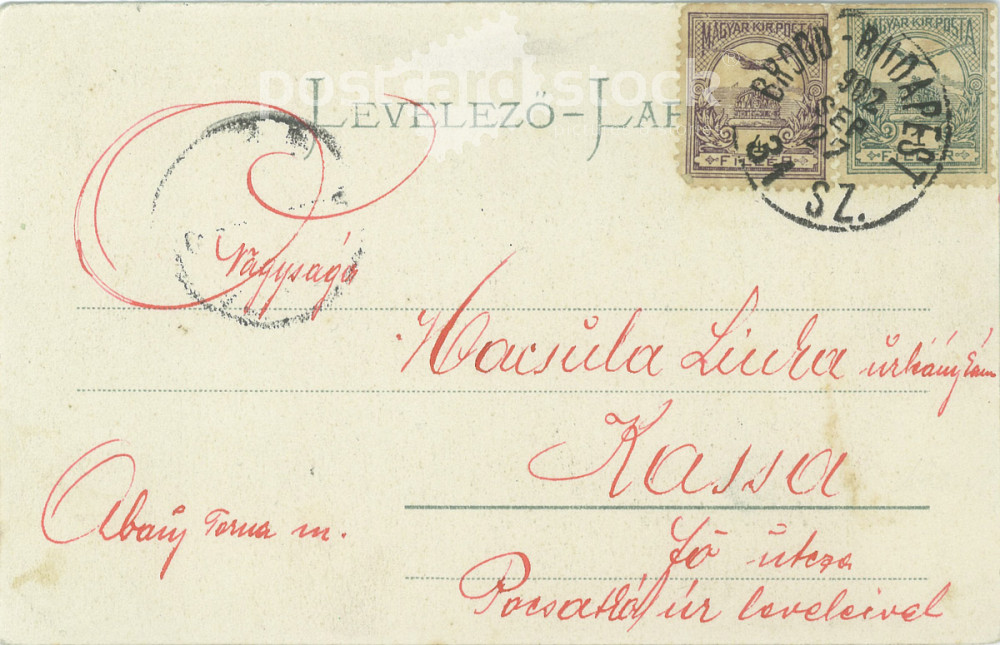 postcard stock
LEVELEZŐ-LAP
MAGYAR KIR. POSTA
FILLÉR
MAGYAR KIR. POSTA
FILLÉR
BRODD-BUDAPEST
902
SEP
31 SZ.
Nagysága
Macsula Linka úrhány
Kassa
Abaúj Torna m.
fő útcza
úr leveleivel